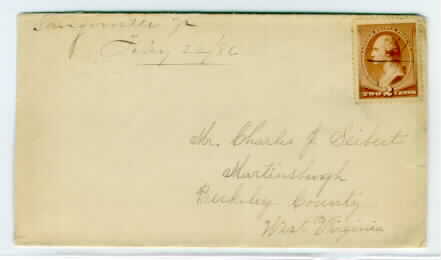 Sangerville
Feby 22/86
TWO 2 CENTS
Mr. Charles J. Seibert
Martinsburgh
Berkeley County
West Virginia